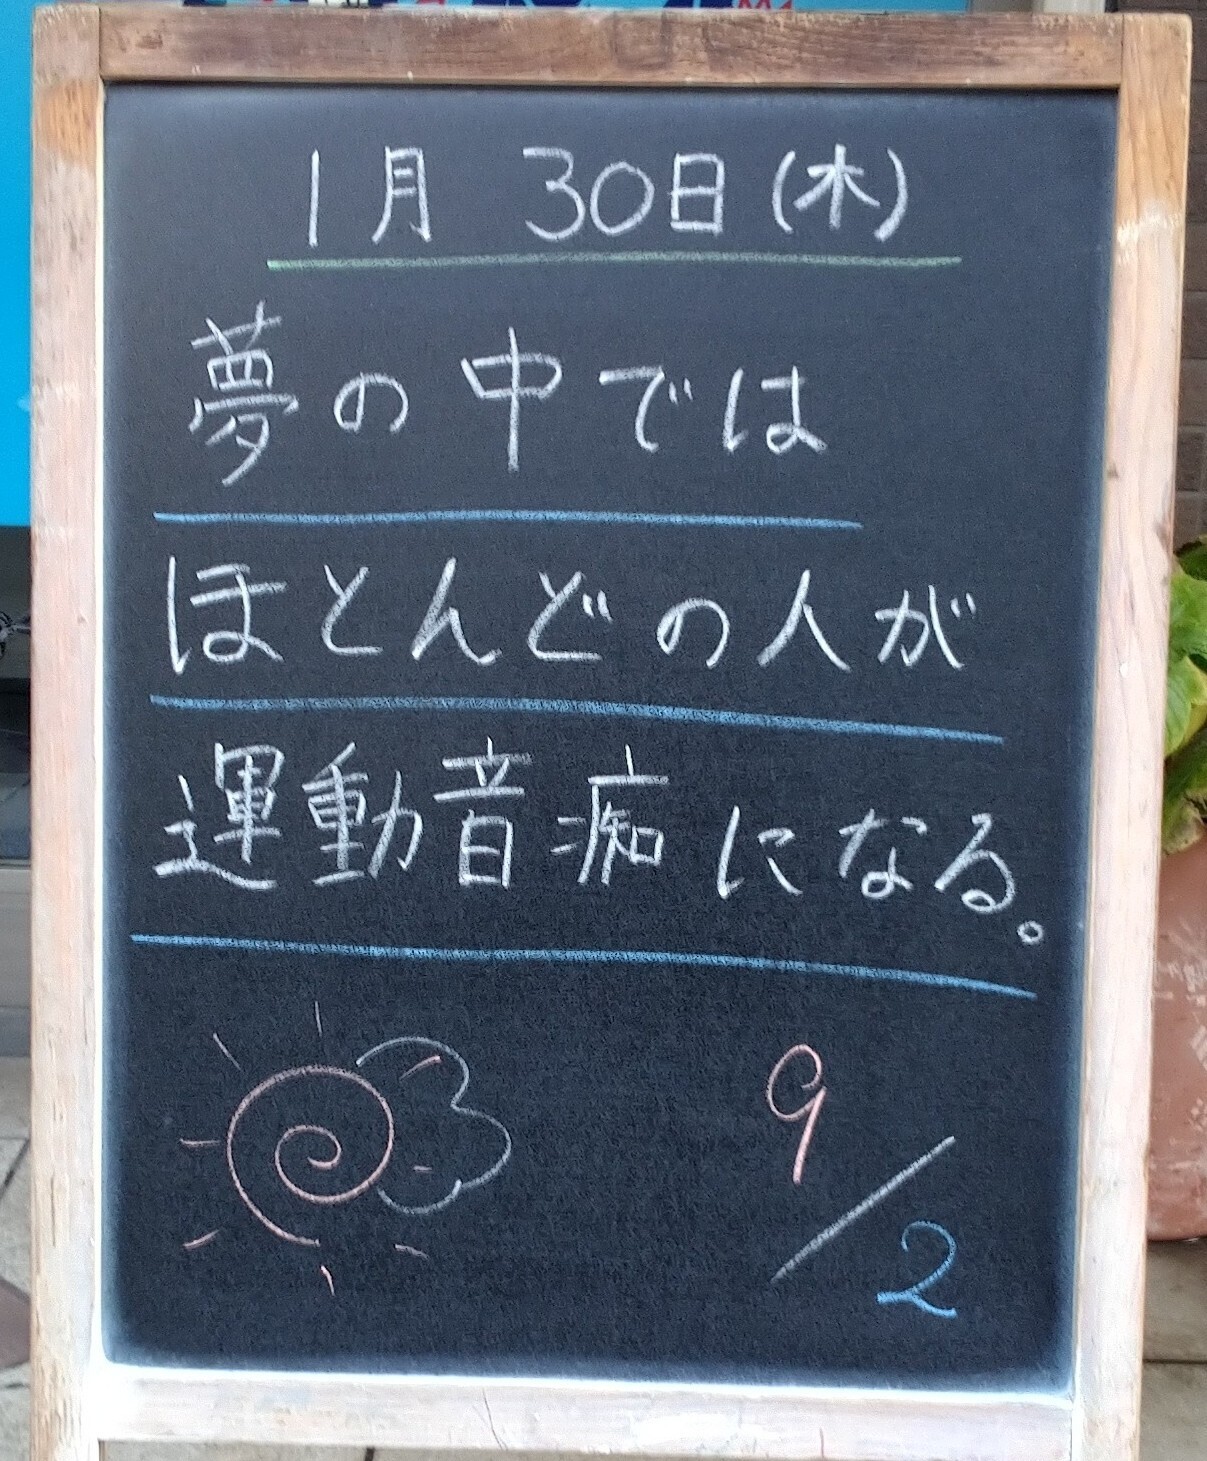 1月 30日(木)
夢の中では
ほとんどの人が
運動音痴になる。
9/2